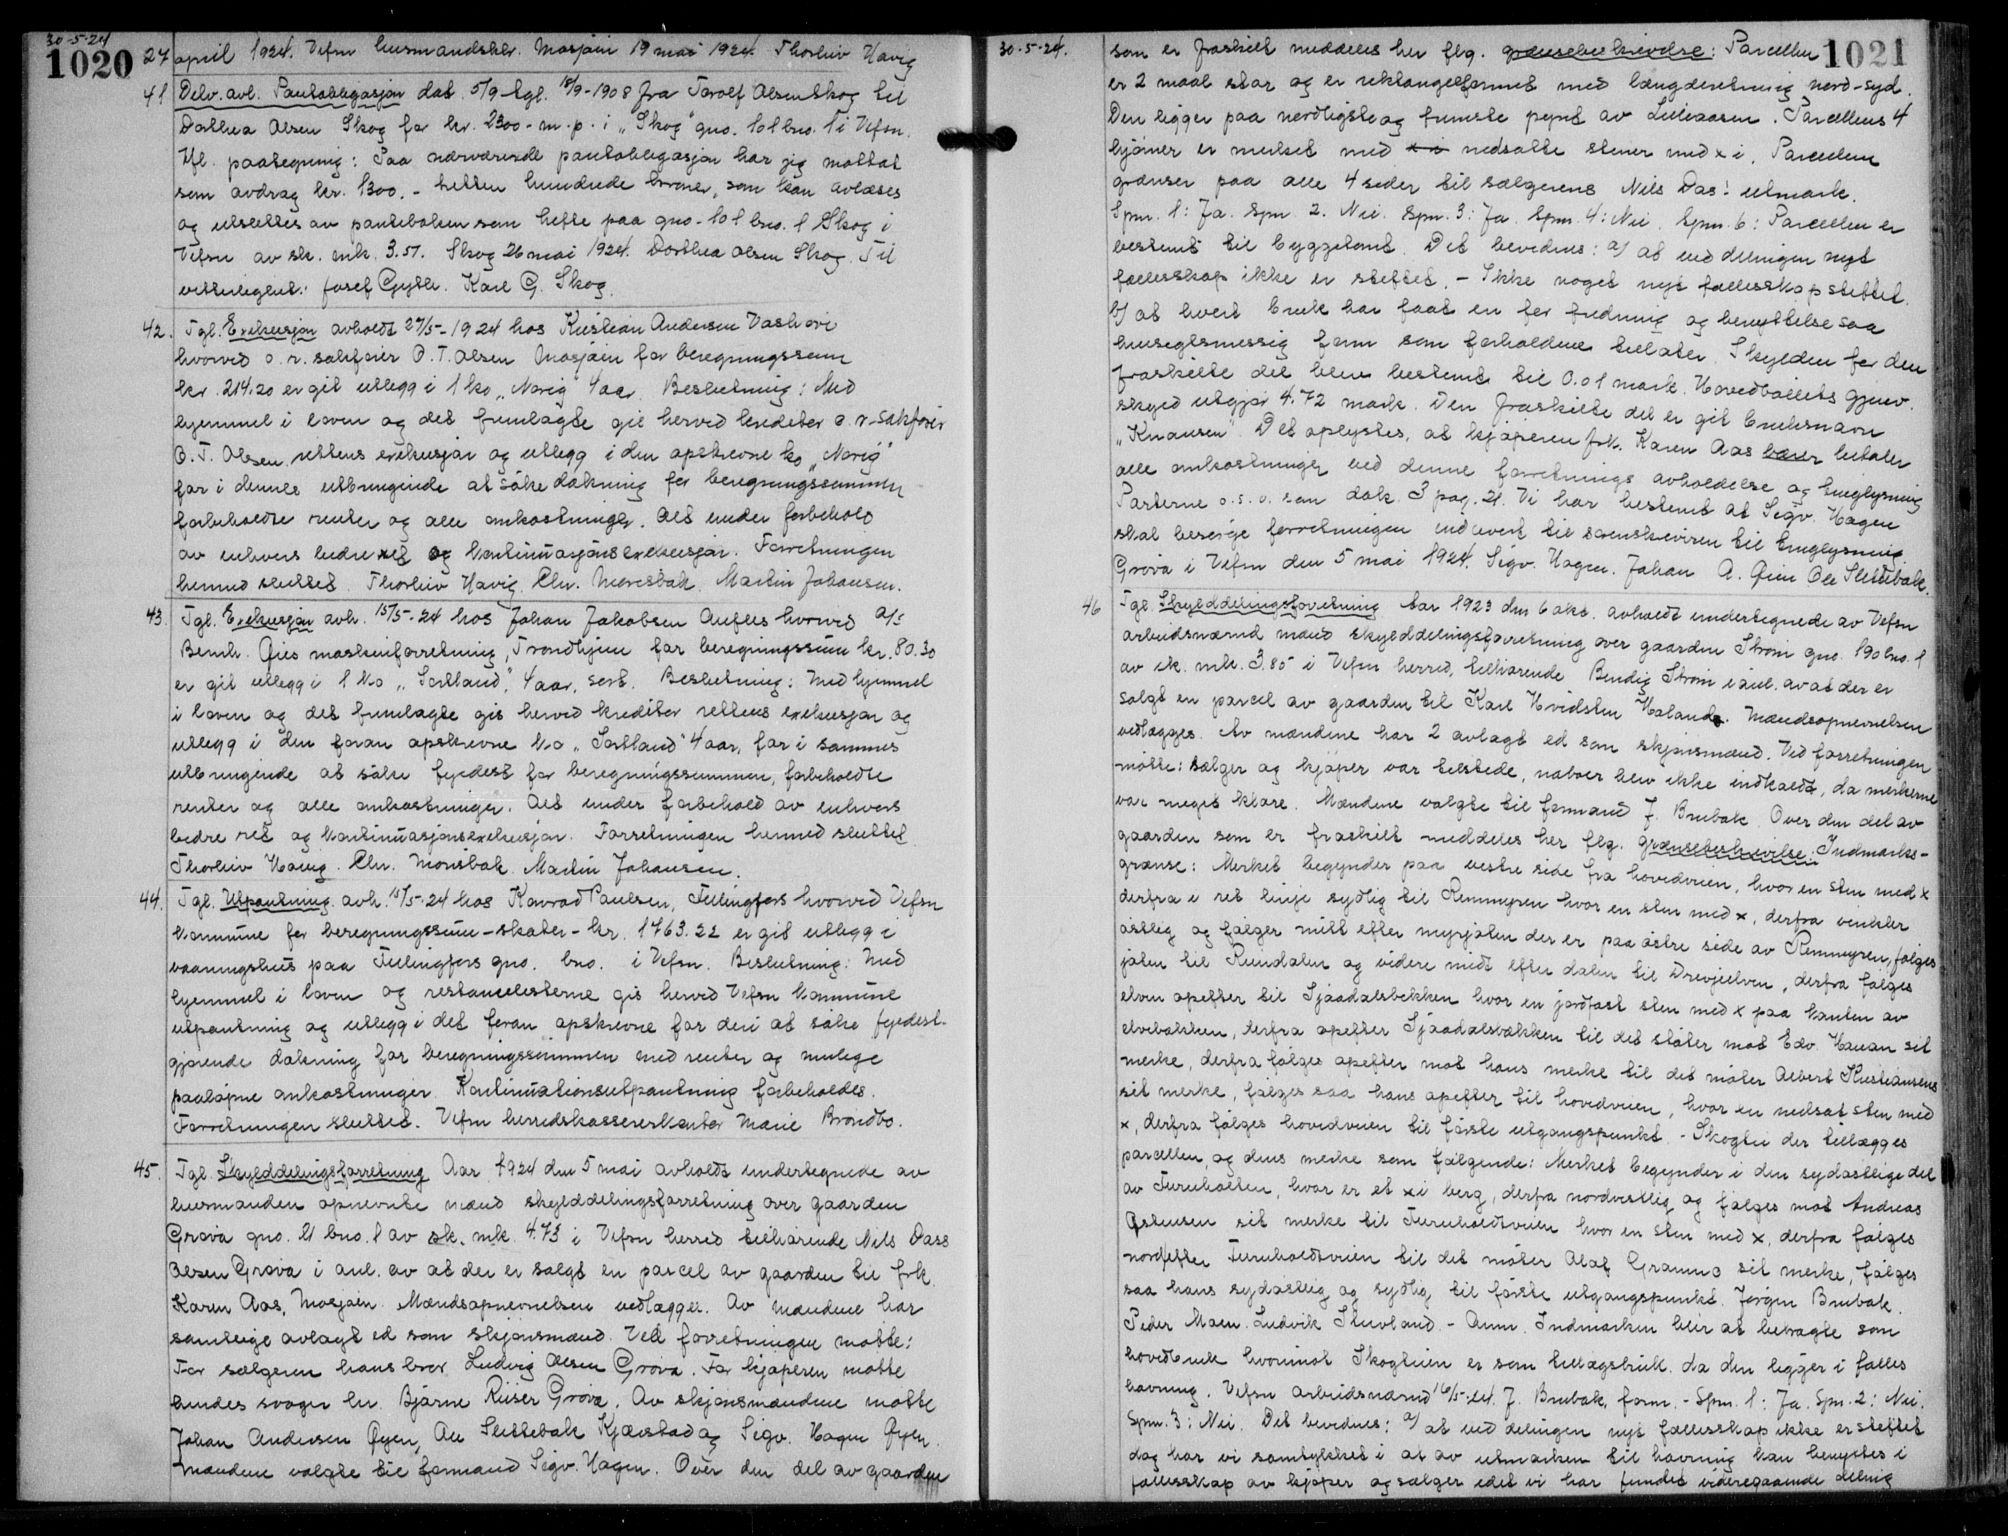 30-5-24
1020
27 april 1924. Vefsn lensmandsktr. Mosjøen 19 mai 1924. Thorleiv Havig
41 Delv. avl. Pantobligasjon dat. 5/9 - tgl. 15/9-1908 fra Torolf Olsen Skog til
Dorthea Olsen Skog for kr. 2300 - m. p. i "Skog" gno. 101 bno. 1 i Vefsn.
Vfl. paategning: Paa nærværende pantobligasjon har jeg mottat
som avdrag kr. 1300.- tretten hundrede kroner, som kan avlæses
og utslettes av panteboken som hefte paa gno. 101 bno. 1 Skog i
Vefsn av sk. mk. 3.57. Skog 26 mai 1924. Dorthea Olsen Skog. Til
vitterlighet: Josef Bysth. Karl G. Skog.
42. Tgl. Exekusjon avholdt 27/5-1924 hos Kristian Andersen Vashavi
hvorved o. r. sakfører O. T. Olsen Mosjøen for beregningssum
kr. 214.20 er git utlegg i 1 ko "Norig" 4 aar. Beslutning: Med
hjemmel i loven og det fremlagte gis herved kreditor o. r. sakfører
O. T. Olsen rettens exekusjon og utlegg i den opskrevne ko "Norig"
for i dennes utbringende at søke dækning for beregningssummen
forbeholdte renter og alle omkostninger. Alt under forbehold
av enhvers bedre ret og kontinuasjonsexekusjon. Forretningen
hermed sluttet. Thorleiv Havig. Chr. Moresbak. Martin Johansen.
43. Tgl. Exekusjon avh. 15/5-24 hos Johan Jakobsen Aufles hvorved A/S
Bernh. Øies maskinforretning, Trondhjem for beregningssum kr. 80.30
er git utlegg i 1 ko "Sortland", 4 aar, sort. Beslutning: Med hjemmel
i loven og det fremlagte gis herved kreditor rettens exekusjon og
utlegg i den foran opskrevne ko "Sortland" 4 aar, for i sammes
utbringende at søke fyldest for beregningssummen, forbeholdte
renter og alle omkostninger. Alt under forbehold av enhvers
bedre ret og kontinuasjonsexekusjon. Forretningen hermed sluttet
Thorleiv Havig. Chr. Moresbak. Martin Johansen.
44. Tgl. Utpantning avh. 15/5-24 hos Konrad Paulsen, Fellingfors hvorved Vefsn
kommune for beregningssum - skatter - kr. 1763.22 er git utlegg i
vaaningshus paa Fellingfors gno. bno. i Vefsn. Beslutning: Med
hjemmel i loven og restancelisterne gis herved Vefsn kommune
utpantning og utlegg i det foran opskrevne for deri at søke fyldest-
gjørende dækning for beregningssummen med renter og mulige
paaløpne omkostninger. Kontinuationsutpantning forbeholdes.
Forretningen sluttet. Vefsn herredskassererkontor Marie Brondbo.
45. Tgl. Skylddelingsforretning Aar 1924 den 5 mai avholdt undertegnede av
lensmanden opnevnte mænd skylddelingsforretning over gaarden
Grova gno. 21 bno. 1 av sk. mk. 4.73 i Vefsn herred tilhørende Nils Dass
Olsen Grova i anl. av at der er solgt en parcel av gaarden til frk.
Karen Aas, Mosjøen. Mændsopnevnelsen vedlægges. Av mændene har
samtlige avlagt ed som skjønsmænd. Ved forretningen møtte:
For sælgeren hans bror Ludvig Olsen Grova. For kjøperen møtte
hendes svoger hr. Bjarne Riiser Grova. Av skjønsmændene møtte
Johan Andersen Øyen, Ole Slettebak Kjærstad og Sigv. Hagen Øyen.
Mændene valgte til formand Sigv. Hagen. Over den del av gaarden
30-5-24.
1021
som er fraskilt meddeles her flg. grænsebeskrivelse: Parcellen
er 2 maal stor og er rektangelformet med længderetning nord-syd.
Den ligger paa nordligste og fremste pynt av Lilleaasen. Parcellens 4
hjørner er merket med x i nedsatte stener med x i. Parcellen
grænser paa alle 4 sider til sælgerens Nils Das' utmark.
Spm. 1: Ja. Spm 2. Nei. Spm. 3: Ja. Spm. 4: Nei. Spm. 6: Parcellen er
bestemt til byggetomt. Det bevidnes: a) at ved delingen nyt
fællesskap ikke er stiftet. - Ikke noget nyt fællesskap stiftet.
b) at hvert bruk har faat en for fredning og benyttelse saa
hensigtsmessig form som forholdene tillater. Skylden for den
fraskilte del blev bestemt til 0.01 mark. Hovedbølets gjenv.
skyld utgjør 4.72 mark. Den fraskilte del er git bruksnavn
"Knausen". Det oplystes, at kjøperen frk. Karen Aas bærer betaler
alle omkostninger ved denne forretnings avholdelse og tinglysning
Parterne o. s. v. som dok. 3 pag. 21. Vi har bestemt at Sigv. Hagen
skal besørge forretningen indlevert til sorenskriveren til tinglysning
Grova i Vefsn den 5 mai 1924. Sigv. Hagen. Johan A. Øien Ole Slettebak.
46 Tgl. Skylddelingsforretning Aar 1923 den 6 okt. avholdt undertegnede av Vefsn
arbeidsnævnd mænd skylddelingsforretning over gaarden Strøm gno. 190 bno. 1
av sk. mk. 3.85 i Vefsn herred, tilhørende Bendig Strøm i anl. av at der er
solgt en parcel av gaarden til Karl Hvidsten Haland. Mændsopnevnelsen
vedlægges. Av mændene har 2 avlagt ed som skjønsmænd. Ved forretningen
møtte: Sælger og kjøper var tilstede, naboer blev ikke indkaldt, da merkerne
var meget klare. Mændene valgte til formand J. Brubak. Over den del av
gaarden som er fraskilt meddeles her flg. grænsebeskrivelse: Indmarks-
grænse: Merket begynder paa vestre side fra hovedveien, hvor en sten med x
derfra i ret linje sydlig til Remmyren hvor en sten med x, derfra vinkler
østlig og følger midt efter myrjølen der er paa østre side av Remmyren, følges
jølen til Rundalen og videre midt efter dalen til Drevjeelven, derfra følges
elven opefter til Sjaadalsbekken hvor en jordfast sten med x paa kanten av
elvebakken, derfra opefter Sjaadalsbækken til det støter mot Edv. Hauan sit
merke, derfra følges opefter mot hans merke til det møter Albert Kristiansens
sit merke, følges saa hans opefter til hovedveien, hvor en nedsat sten med
x, derfra følges hovedveien til første utgangspunkt. - Skogtei der tillægges
parcellen, og dens merke som følgende: Merket begynder i den sydøstlige del
av Furuholten, hvor er et x i berg, derfra nordvestlig og følges mot Andreas
Østensen sit merke til Furuholtsveien hvor en sten med x, derfra følges
nordefter Furuholtsveien til det møter Olaf Granmo sit merke, følges
saa hans sydøstlig og sydlig til første utgangspunkt. Jørgen Brubak.
Peder Moen. Ludvik Stuvland. - Anm. Indmarken blir at betragte som
hovedbruk hvorimot Skogteien er som tillægsbruk da den ligger i fælles
havning. Vefsn arbeidsnævnd 16/5-24. J. Brubak, form. - Spm. 1: Ja. Spm. 2: Nei.
Spm. 3: Nei. Det bevidnes: a) at ved delingen nyt fællesskap ikke er stiftet
dog har vi samtykket i at av utmarken til havning kan benyttes i
fællesskap av kjøper og sælger idet vi har fundet videregaaende deling